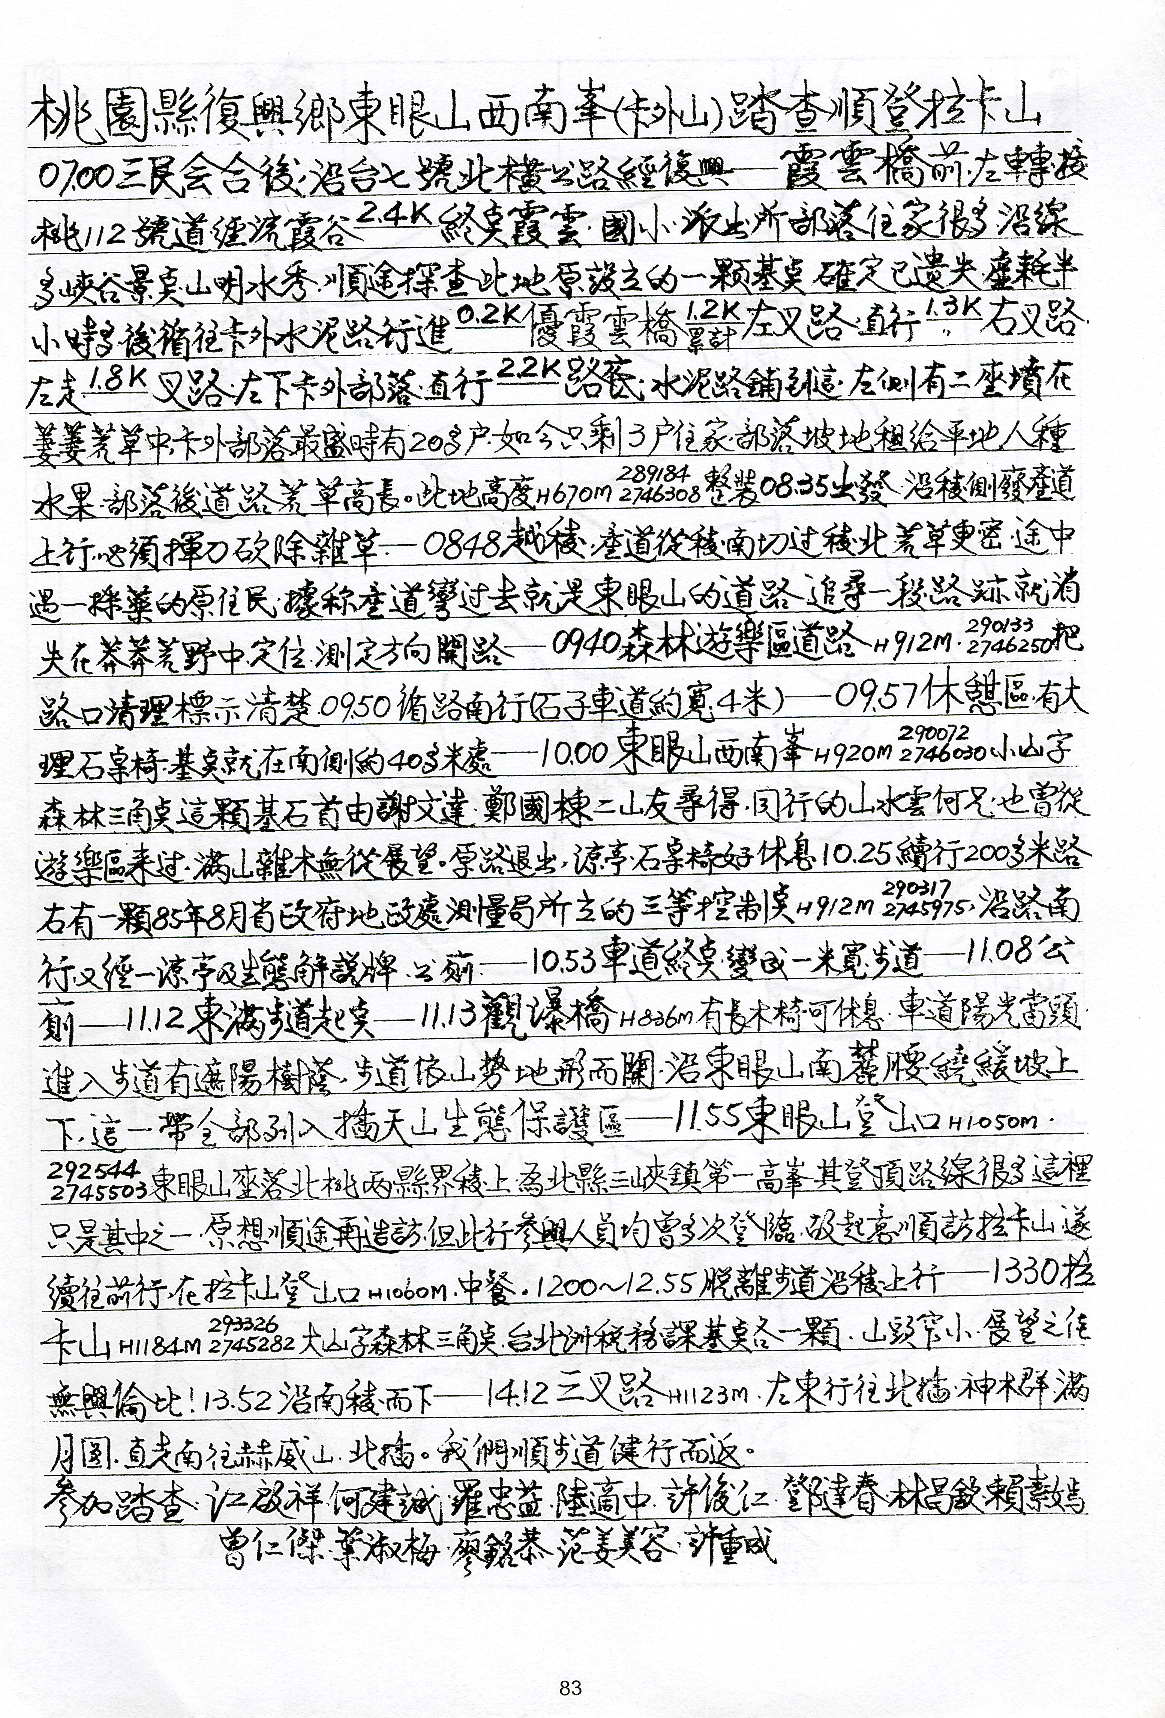 桃園縣復興鄉東眼山西南峯(卡外山)踏查順登拉卡山
07.00三民会合後·沿台七號北橫公路經復興——霞雲橋前·左轉·接
桃112號道經流霞谷 2.4K 終点霞雲·國小·派出所·部落住家很多·沿線
多峽谷景点·山明水秀·順途探查此地原設立的一顆基点·確定已遺失·虛耗半
小時多·後循往卡外水泥路行進 0.2K 優霞雲橋 1.2K 累計 左叉路·直行 1.3K 〃 右叉路·
左走 1.8K 叉路·左下卡外部落·直行 2.2K 路底·水泥路鋪到這·左側有二座墳在
萋萋荒草中·卡外部落最盛時有20多户·如今只剩3户住家·部落坡地租給平地人種
水果·部落後道路荒草高長。此地高度H670M 289184 2746308 整裝08.35出發·沿稜側廢產道
上行·必須揮刀砍除雜草——0848越稜·產道從稜南切过稜北·荒草更密·途中
遇一採藥的原住民·據称產道彎过去就是東眼山的道路·追尋一段·路跡就消
失在莽莽荒野中·定位·測定方向開路——0940森林遊樂區道路H912M·290133 2746250把
路口清理標示清楚·09.50循路南行(石子車道約寬4米)——09.57休憩區·有大
理石桌椅·基点就在南側約40多米處——10.00東眼山西南峯H920M 290072 2746030小山字
森林三角点這顆基石首由謝文達·鄭國棟二山友尋得·同行的山水雲何兄·也曾從
遊樂區来过·滿山雜木無從展望。原路退出·涼亭·石桌椅好休息10.25續行200多米路
右有一顆85年8月省政府地政處測量局所立的三等控制点H912M 290317 2745975·沿路南
行又經一涼亭及生態解說牌·公廁——10.53車道終点變成一米寬步道——11.08公
廁——11.12東滿步道起点——11.13觀瀑橋H836M有長木椅可休息·車道陽光當頭·
進入步道有遮陽樹蔭·步道依山勢地形而開·沿東眼山南麓腰繞緩坡上
下·這一帶全部列入插天山生態保護區——11.55東眼山登山口H1050M·
292544 2745503東眼山座落北桃兩縣界稜上·為北縣三峽鎮第一高峯·其登頂路線很多·這裡
只是其中之一·原想順途再造訪·但此行參與人員均曾多次登臨·故起意順訪拉卡山·遂
續往前行·在拉卡山登山口H1060M·中餐。1200~12.55脫離步道沿稜上行——1330拉
卡山H1184M 293326 2745282大山字森林三角点·台北洲稅務課基点各一顆·山頭窄小·展望之佳
無與倫比!13.52沿南稜而下——14.12三叉路H1123M·左東行往北插·神木群·滿
月圓·直走南往赫威山·北插。我們順步道健行而返。
參加踏查·江啟祥·何建誠·羅忠益·陸適中·許俊仁·鄧達春·林昌敏·賴素嫣
曾仁傑·葉淑梅·廖銘恭·范姜美容·許重成
83